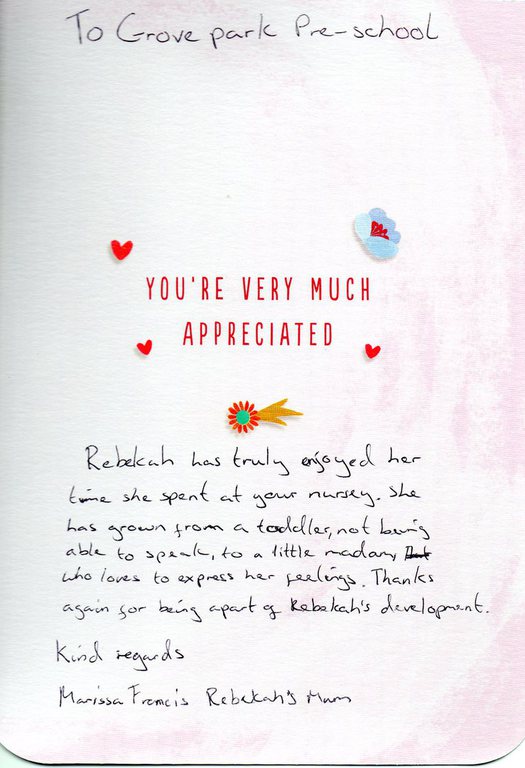 To Grove park Pre-school
YOU'RE VERY MUCH
APPRECIATED
Rebekah has truly enjoyed her
time she spent at your nursey. She
has grown from a toddler, not being
able to speak, to a little madam,
who loves to express her feelings. Thanks
again for being apart of Rebekah's development.
Kind regards
Marissa Francis Rebekah's Mum